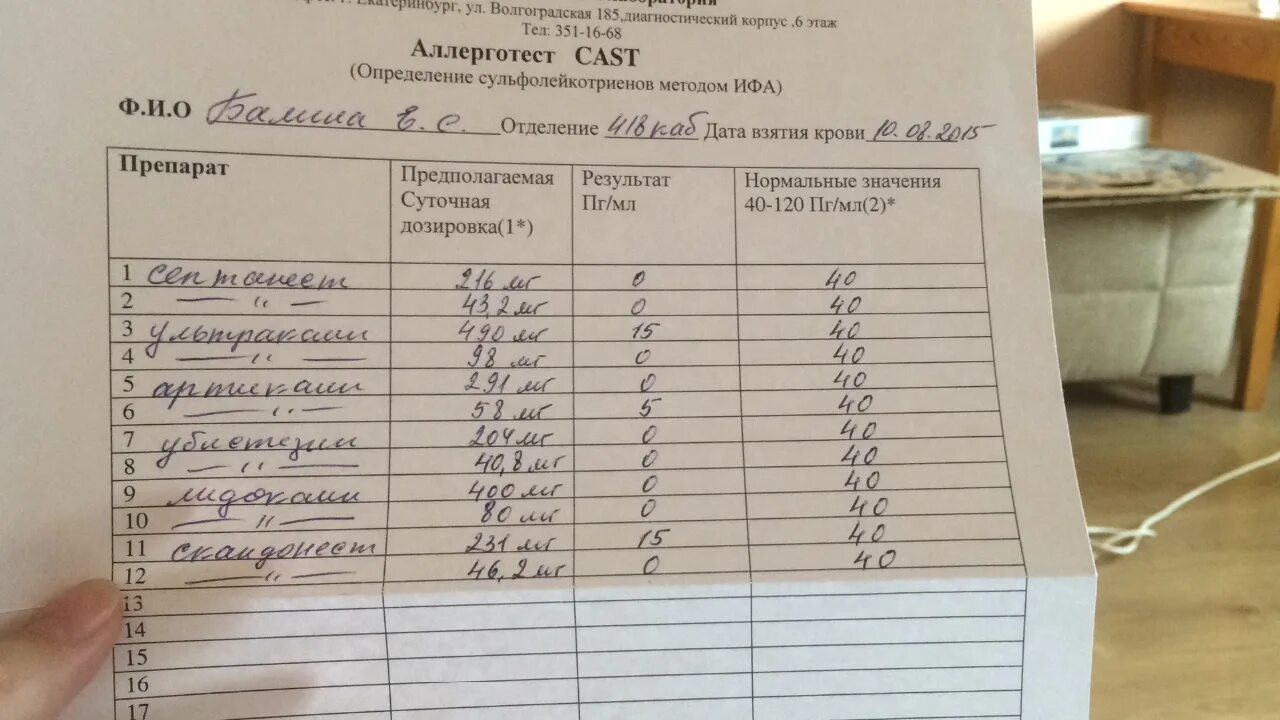 Екатеринбург, ул. Волгоградская 185,диагностический корпус ,6 этаж
Тел: 351-16-68
Аллерготест CAST
(Определение сульфолейкотриенов методом ИФА)
Ф.И.О Балина Е. С. Отделение 418 каб Дата взятия крови 10.08.2015
Препарат Предполагаемая Суточная дозировка(1*) Результат Пг/мл Нормальные значения 40-120 Пг/мл(2)*
1 септанест 216 мг 0 40
2 — " — 43,2 мг 0 40
3 ультракаин 490 мг 15 40
4 — " — 98 мг 0 40
5 артикаин 291 мг 0 40
6 — " — 58 мг 5 40
7 убистезин 204 мг 0 40
8 — " — 40,8 мг 0 40
9 лидокаин 400 мг 0 40
10 — " — 80 мг 0 40
11 скандонест 231 мг 15 40
12 — " — 46,2 мг 0 40
13
14
15
16
17